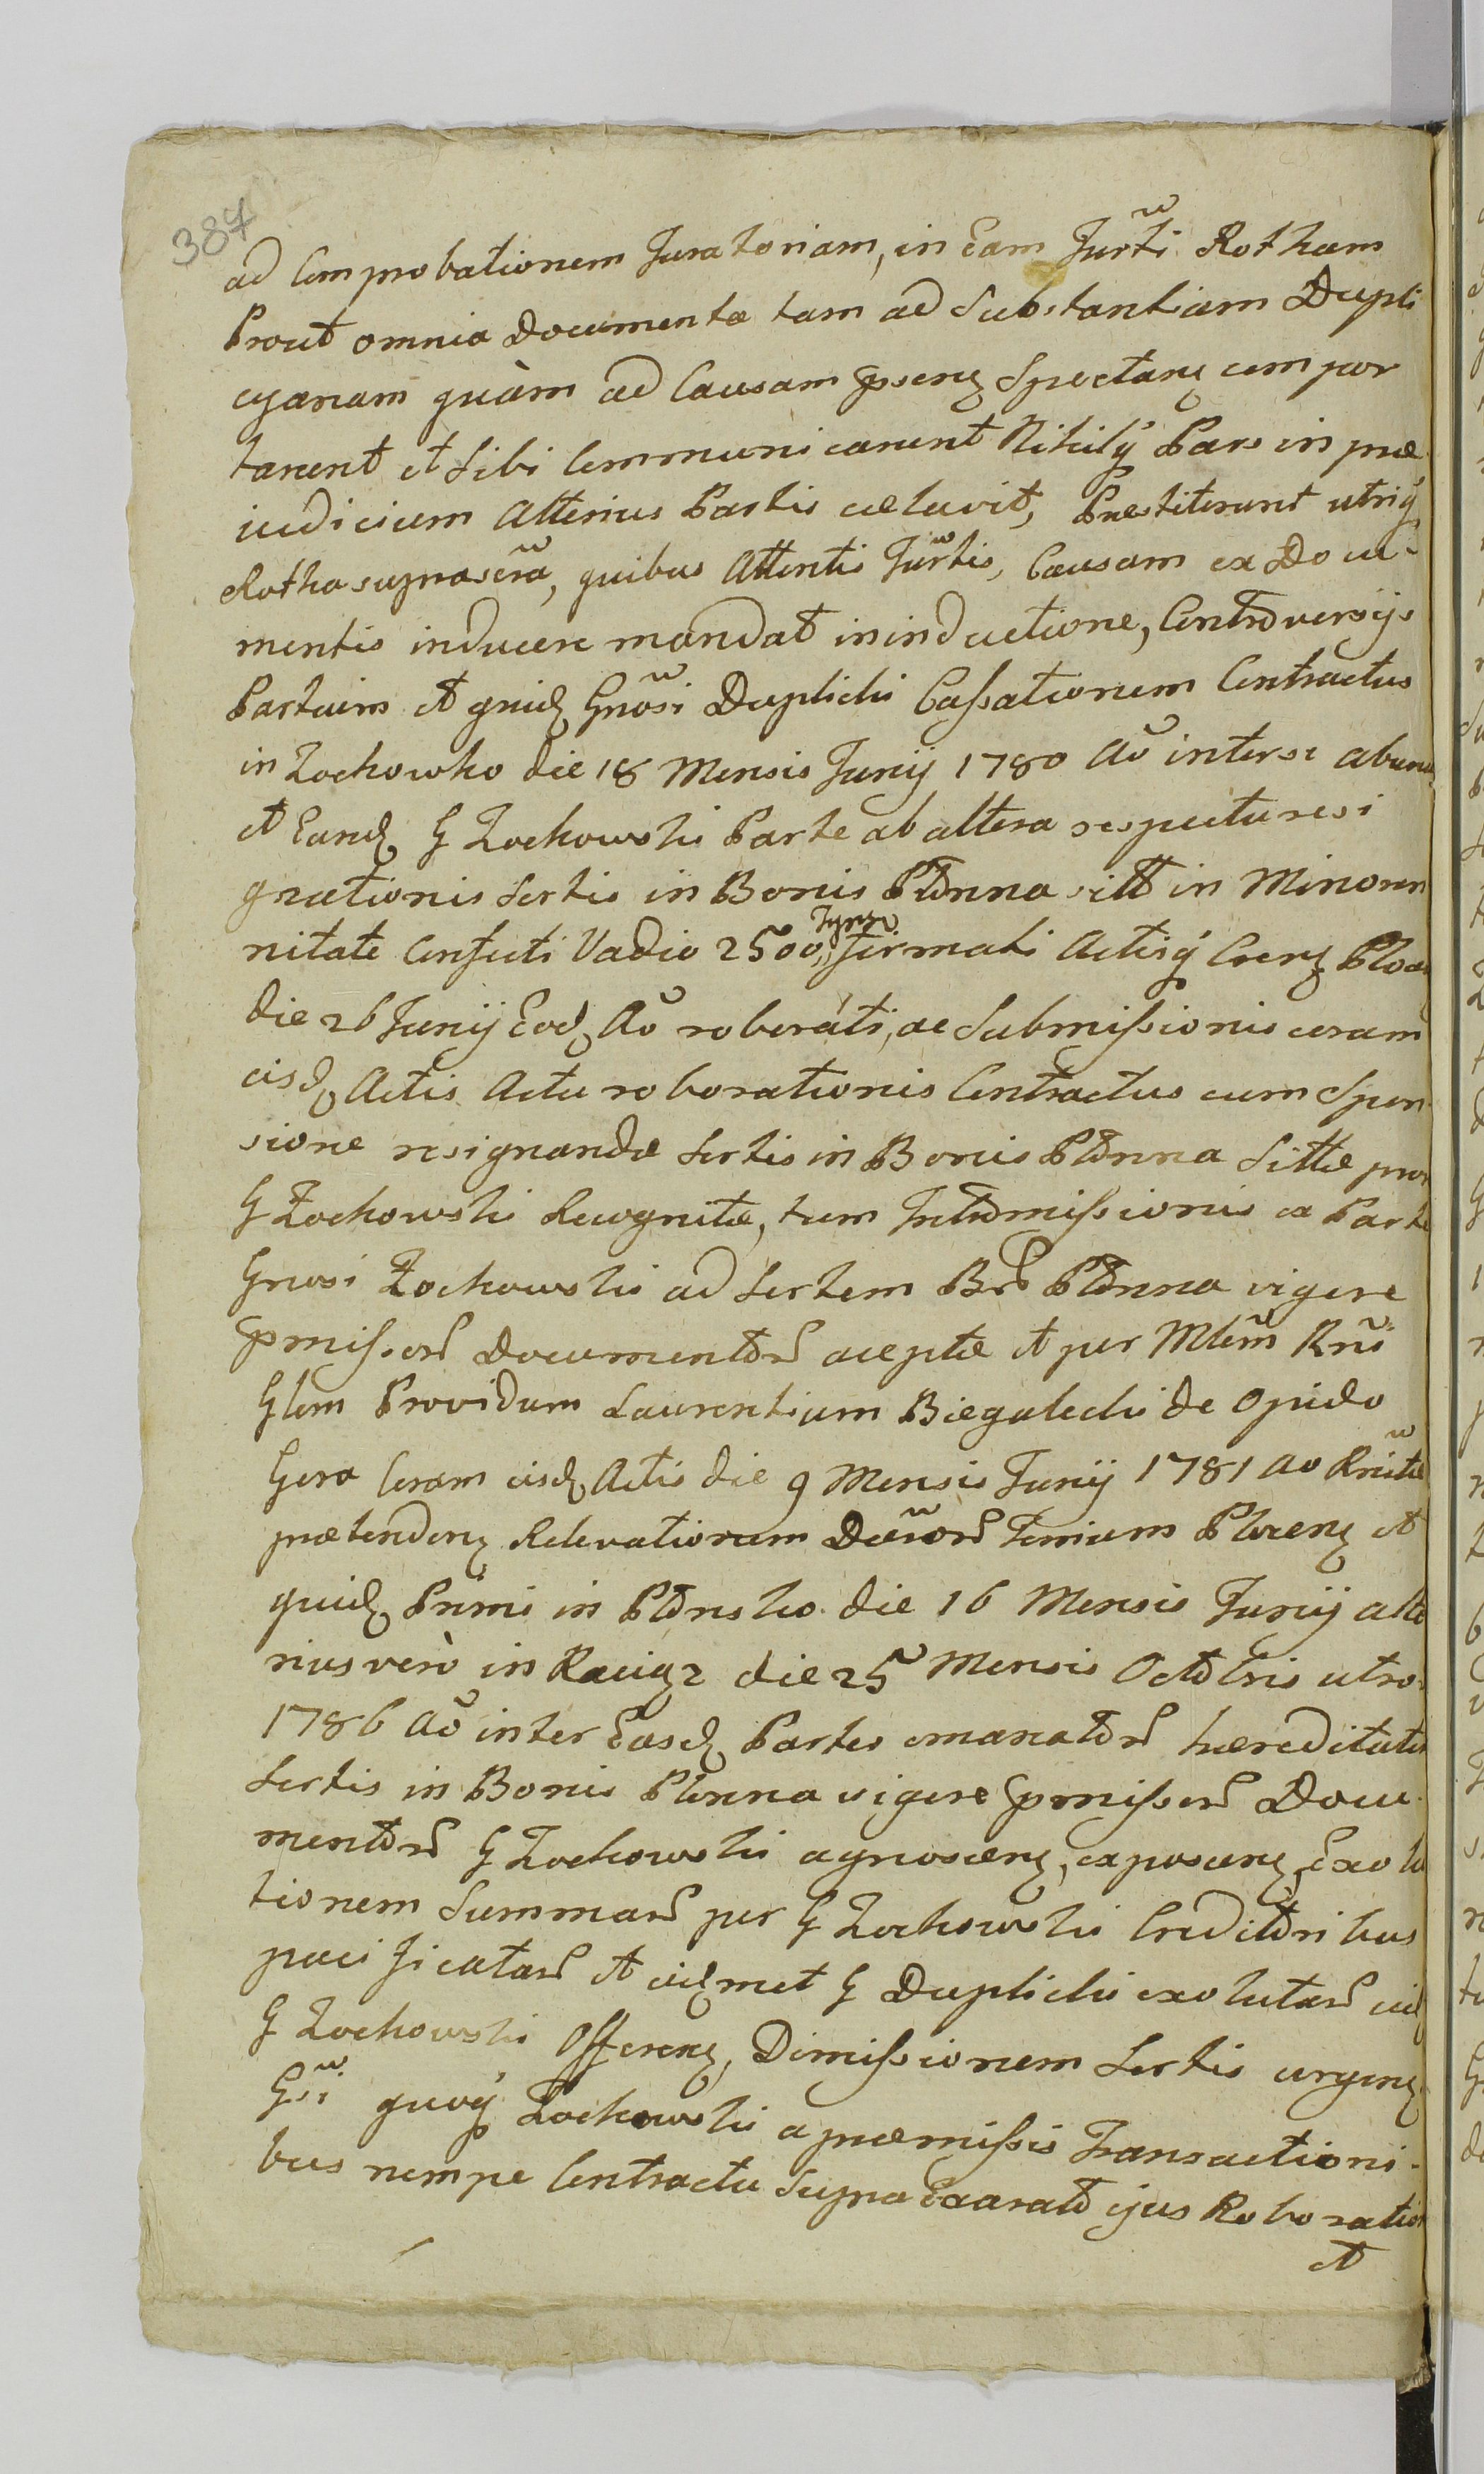 387
ad Comprobationem Juratoriam, in Eam Jur̃ti Rotham
Prout omnia Documenta tam ad Substantiam Dupli
cyanam quàm ad Causam pseng Spectang compor
tarent et Sibi Communicarent Nihilq́ Pars in præ
iudicium Alterius Partis celavit, Præstiterunt utriq́
Rotha suprascrã, quibus Attentis Jur̃tis, Causam ex Docu-
mentis inducere mandat in inductione, Controversijs
Partium et quidꝫ Gnõsi Duplicki Cassationem Contractus
in Zochowko die 18 Mensis Junij 1780 Aõ inter se ab una
et Eandꝫ G Zochowski Parte ab altera respectu resi
gnationis Sortis in Bonis Płonna sitt in Minoren
nitate Confecti Vadio 2500,, Tynfr̃ firmati Actisq́ Crenꝫ Plocen
die 26 Junij Eodꝫ Aõ roborati, ac Submissionis coram
eisdꝫ Actis Actu roborationis Contractus cum Spon
sione resignandæ Sortis in Bonis Płonna Sittæ pro
G Zochowski Recognitæ, tum Intromissionis ex Parte
Gnosi Zochowski ad Sortem Brõ Płonna vigere
pmissor̃ Documentor̃ aceptæ et per Mtem̃ Rñi
Glem Providum Laurentium Biegalecki de Opido
Gora Coram eisdꝫ Actis die 9 Mensis Junij 1781 Ao Rnitæ
prætendenꝫ Relevationem Decr̃or̃ Termium Plocenꝫ et
quidꝫ Primi in Płonsko die 16 Mensis Junij alte
rius verò in Raciąz die 25 Mensis Octobris utro-
1786 Aõ inter Easdꝫ Partes emanator̃ hæreditatem
Sortis in Bonis Plonna vigere pmissor̃ Docu-
mentor̃ G Zochowski agnoscenꝫ, exposcenꝫ, Exolu
tionem Summar̃ per G Zochowski Creditoribus
pacificatar̃ et eidꝫmet G Duplicki exolutar̃ eidꝫ
G Zochowski Offerenꝫ, Dimissionem Sortis urgenꝫ
Gsĩ quoq́ Zochowski a præmissis Transactioni-
bus nempe Contractu Supra Exarato ejus Roboratione
et